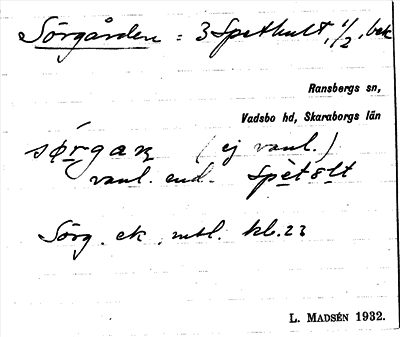 Sörgården = 3 Spethult, 1/2, bek
Ransbergs sn,
Vadsbo hd, Skaraborgs län
(ej vanl.)
vanl. end. spètəlt
Sörg. ek. mtl. kl. 23
L. MADSÉN 1932.